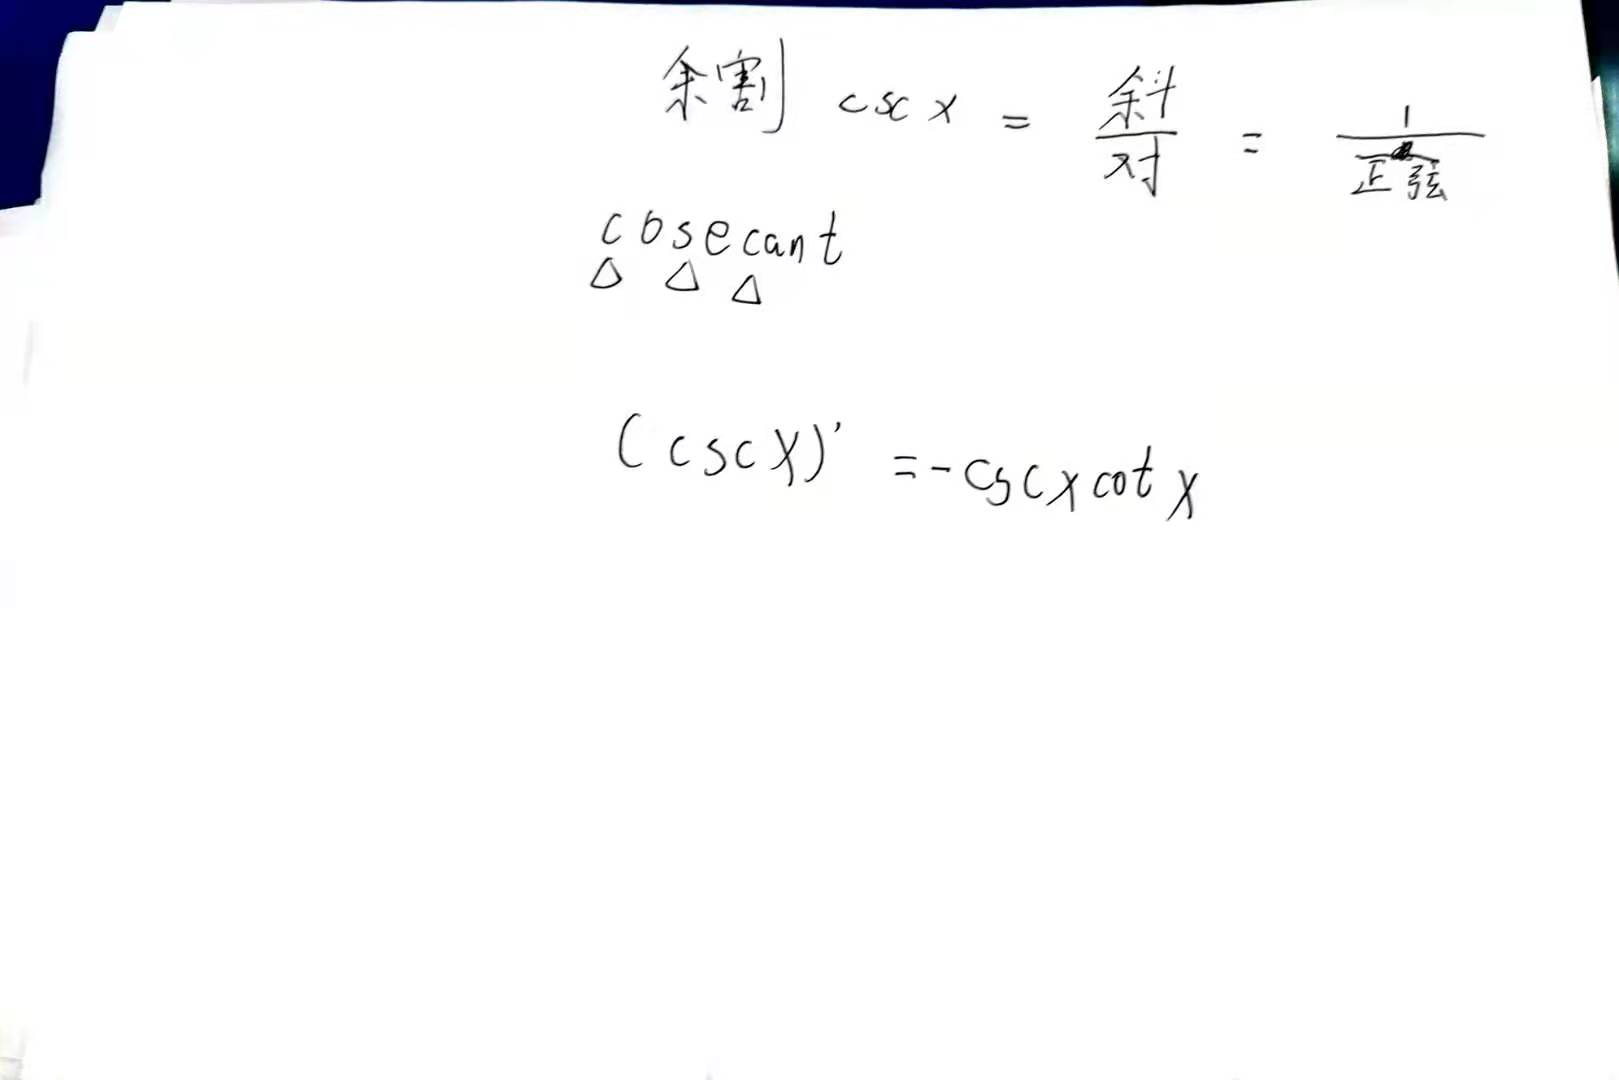 余割 csc x = 斜/对 = 1/正弦
cosecant
△ △ △
(csc x)' = -csc x cot x